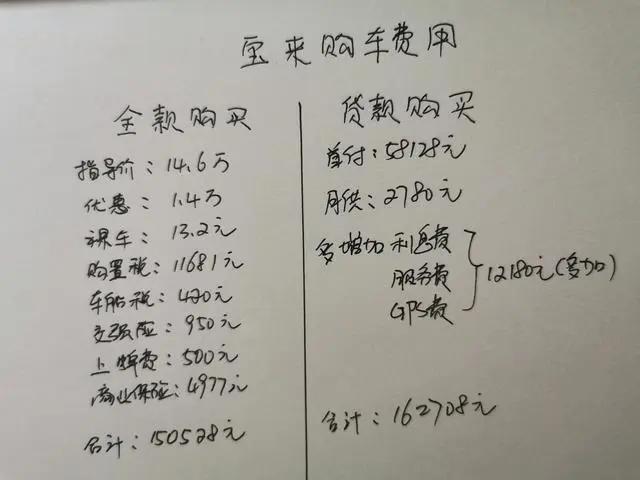 宝来购车费用
全款购买
指导价：14.6万
优惠：1.4万
裸车：13.2元
购置税：11681元
车船税：420元
交强险：950元
上牌费：500元
商业保险：4977元
合计：150528元
贷款购买
首付：58128元
月供：2780元
多增加利息费
服务费
GPS费
12180元（多加）
合计：162708元